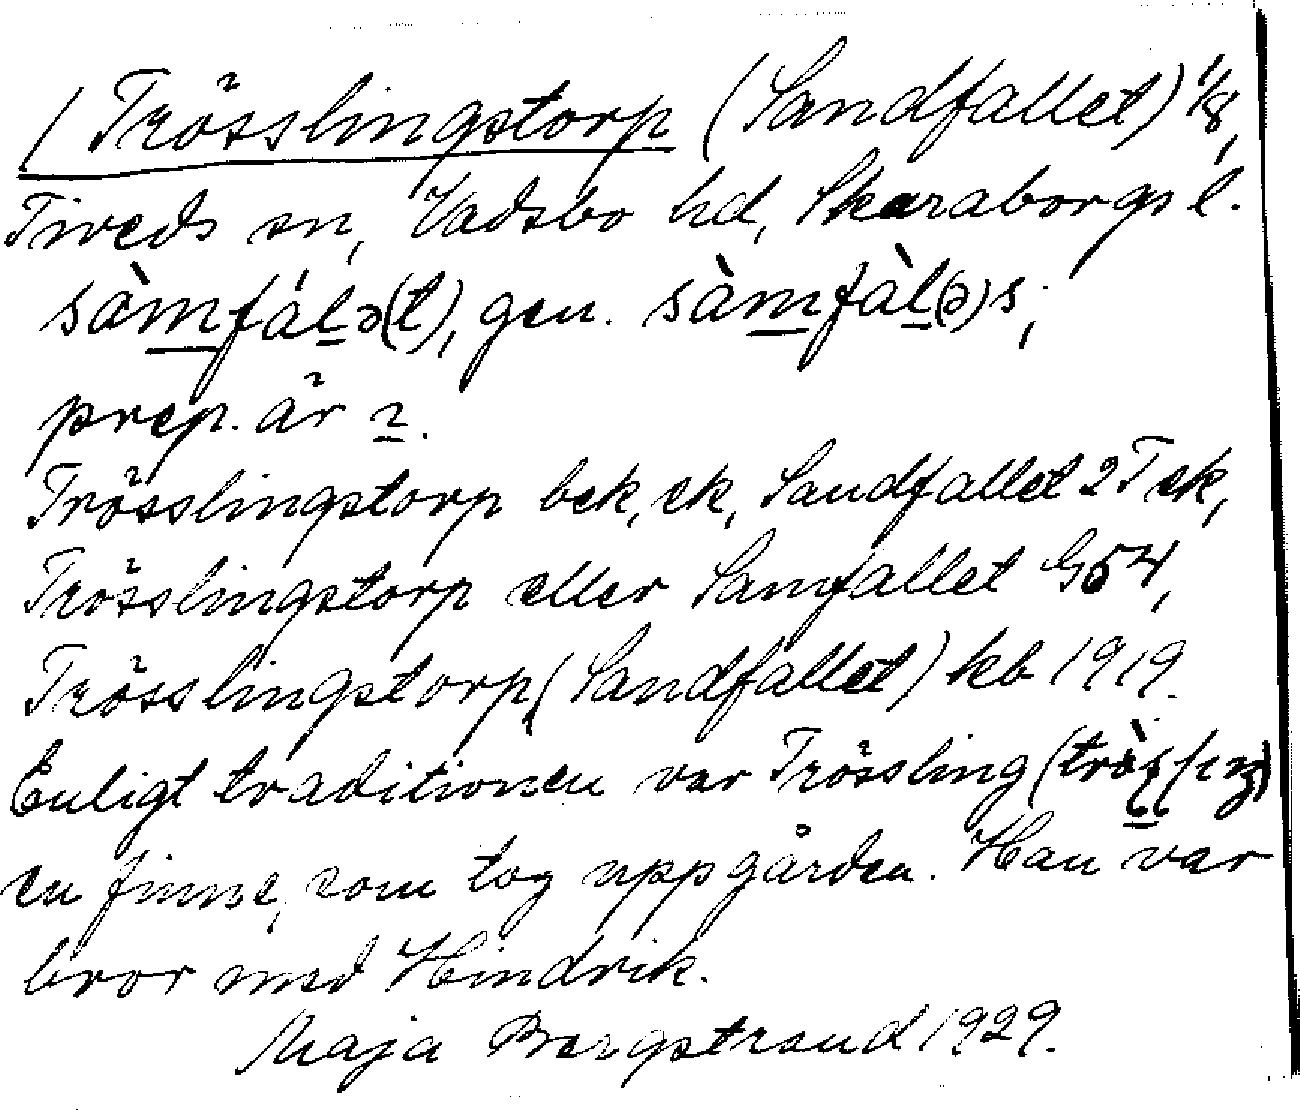 / Trösslingstorp (Sandfallet) 1/8,
Tiveds sn, Vadsbo hd, Skaraborgs l.
sàmfálə(t), gen. sàmfàl(ə)s;
prep. är 2.
Trösslingstorp bek, ek, Sandfallet 2T ek,
Trösslingstorp eller Samfallet G54,
Trösslingstorp, (Sandfallet) kb 1919.
Enligt traditionen var Trössling
en finne, som tog upp gården. Han var
bror med Hindrik.
Maja Bergstrand 1929.